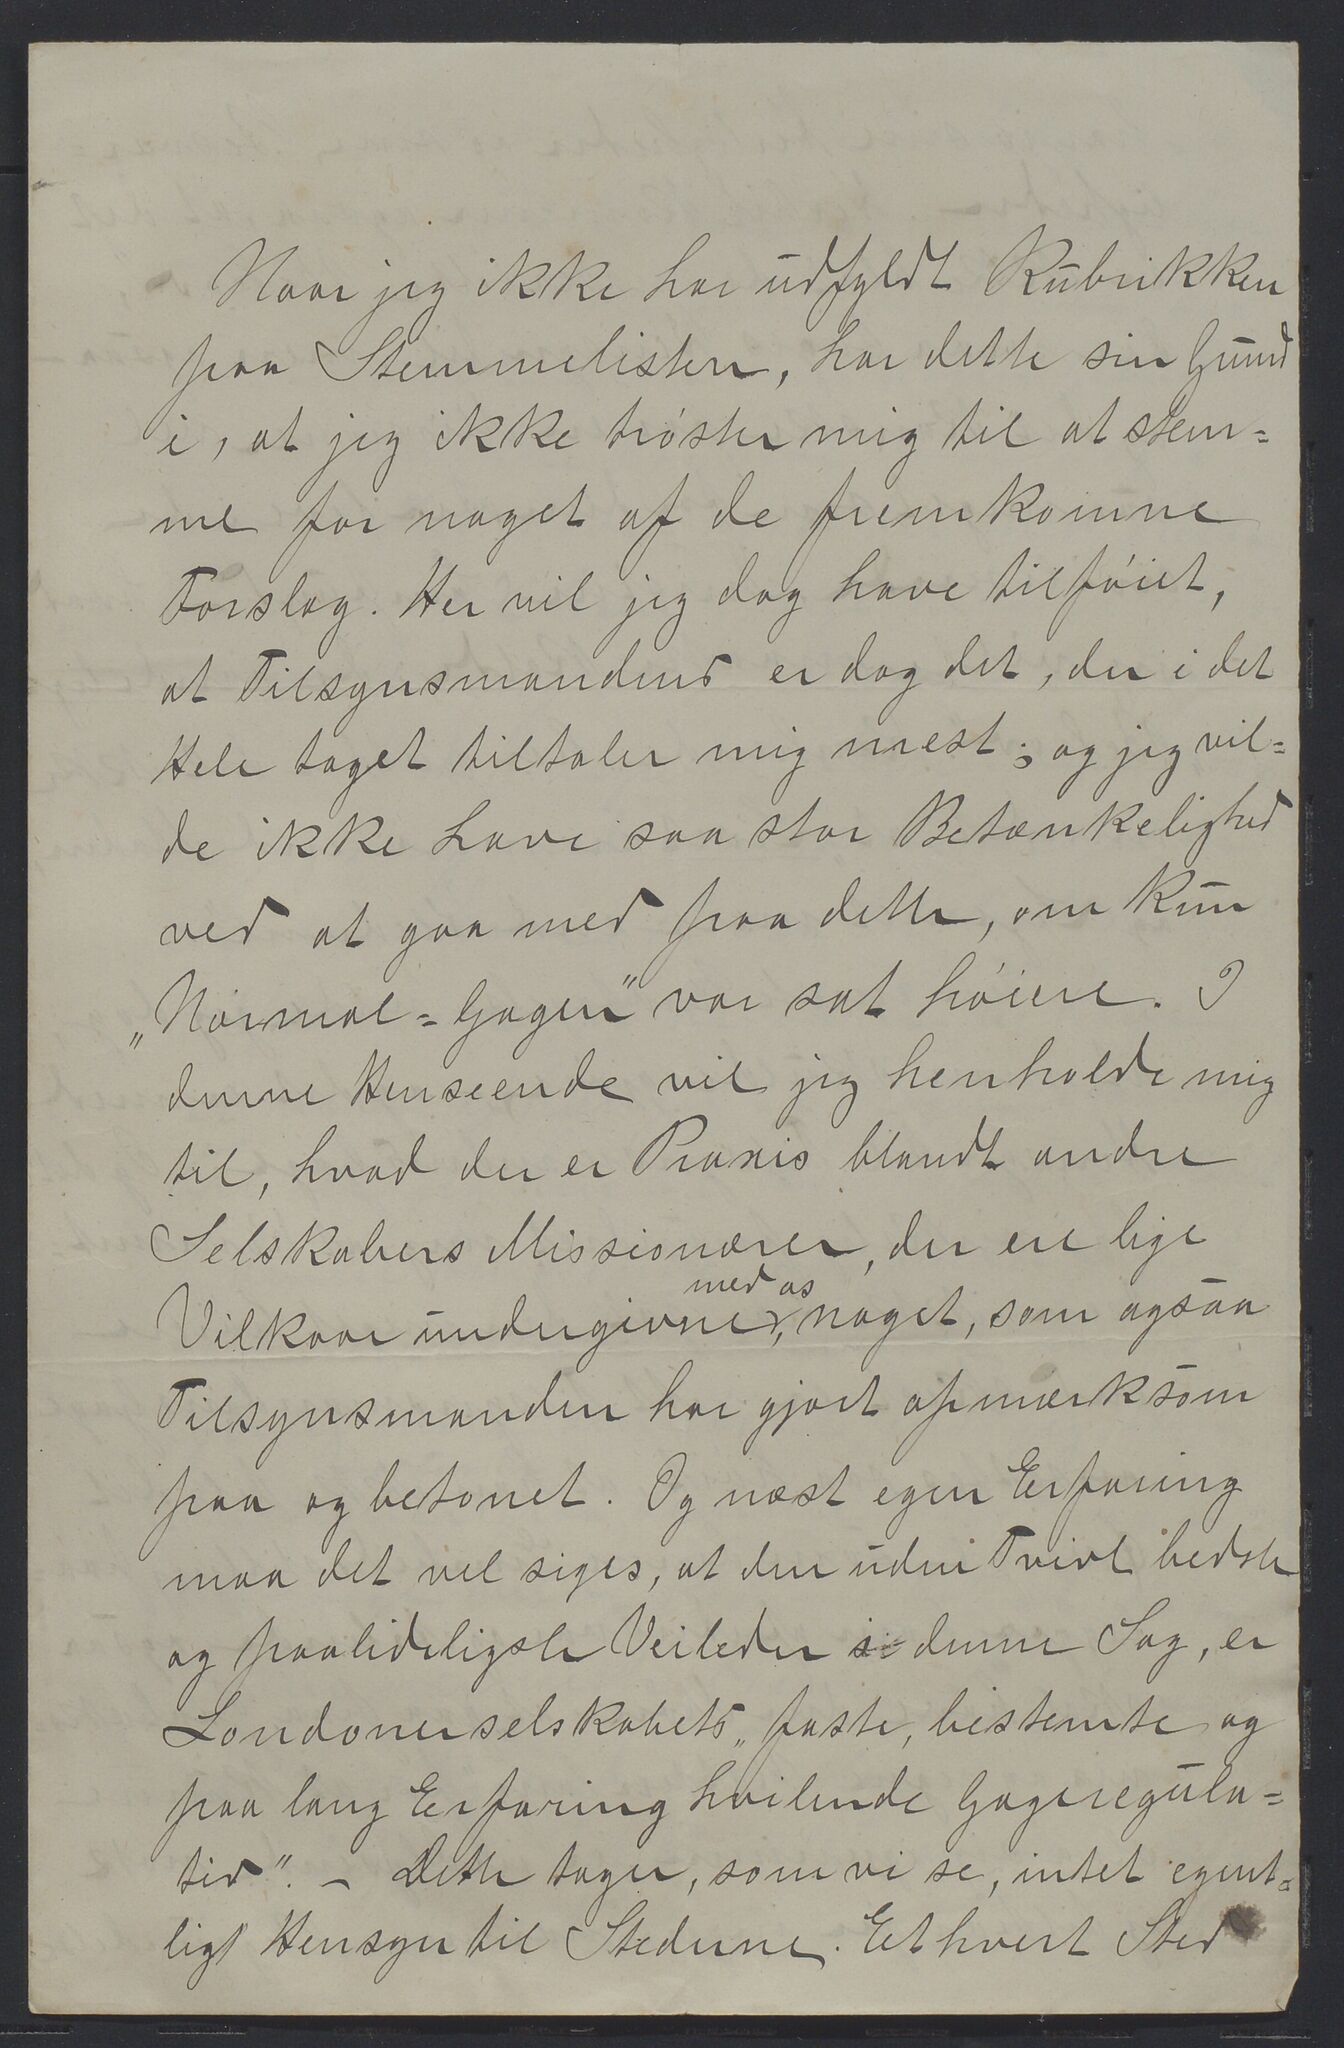 Naar jeg ikke har udfyldt Rubrikken
paa Stemmelisten, har dette sin Grund
i, at jeg ikke trøster mig til at stem=
me for noget af de fremkomne
Forslag. Her vil jeg dog have tilføiet,
at Tilsynsmandens er dog det, der i det
Hele taget tiltaler mig mest; og jeg vil=
de ikke have saa stor Betænkelighed
ved at gaa med paa dette, om kun
„Normal=Gagen" var sat høiere. I
denne Henseende vil jeg henholde mig
til, hvad der er Praxis blandt andre
Selskabers Missionærer, der ere lige
med os
Vilkaar undergivne, noget, som ogsaa
Tilsynsmanden har gjort opmærksom
paa og betonet. Og næst egen Erfaring
maa det vel siges, at den uden Tvivl bedste
og paalideligste Veileder i denne Sag, er
Londonerselskabets „faste, bestemte og
paa lang Erfaring hvilende Gageregula=
tiv". – Dette tager, som vi se, intet egent=
ligt Hensyn til Stederne. Et hvert Sted